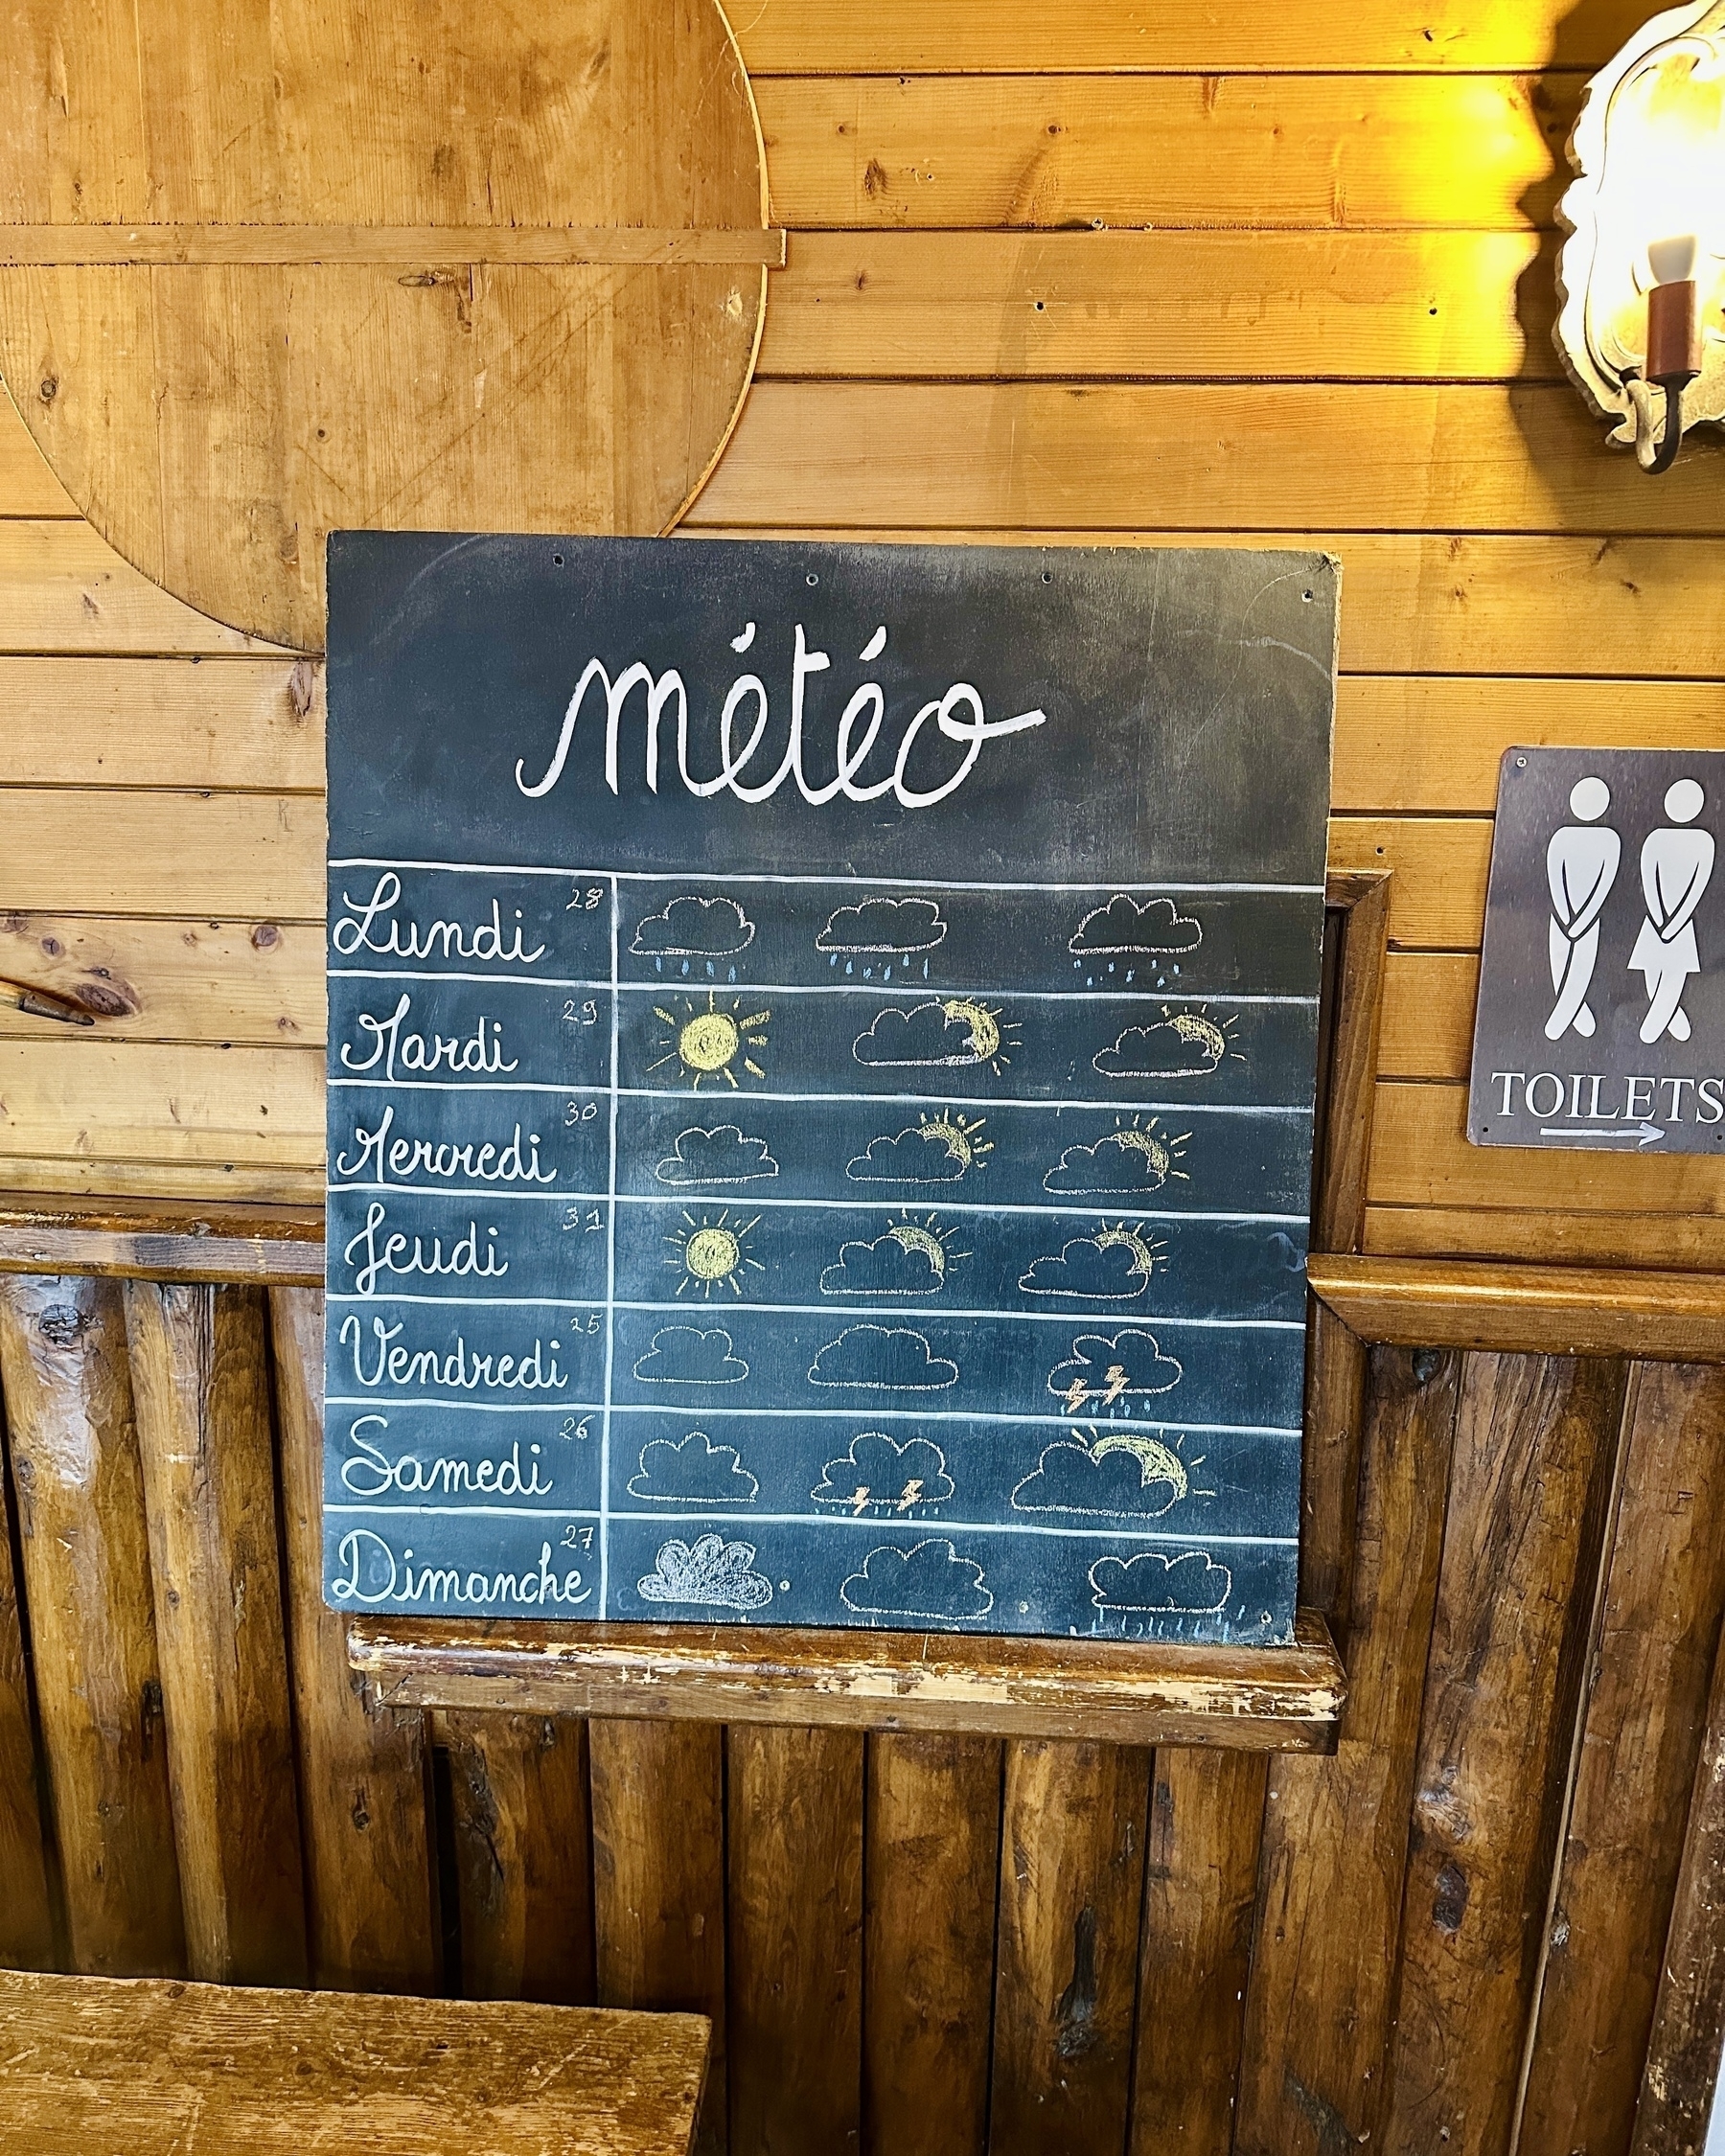 météo
Lundi 28
Mardi 29
Mercredi 30
Jeudi 31
Vendredi 25
Samedi 26
Dimanche 27
TOILETS